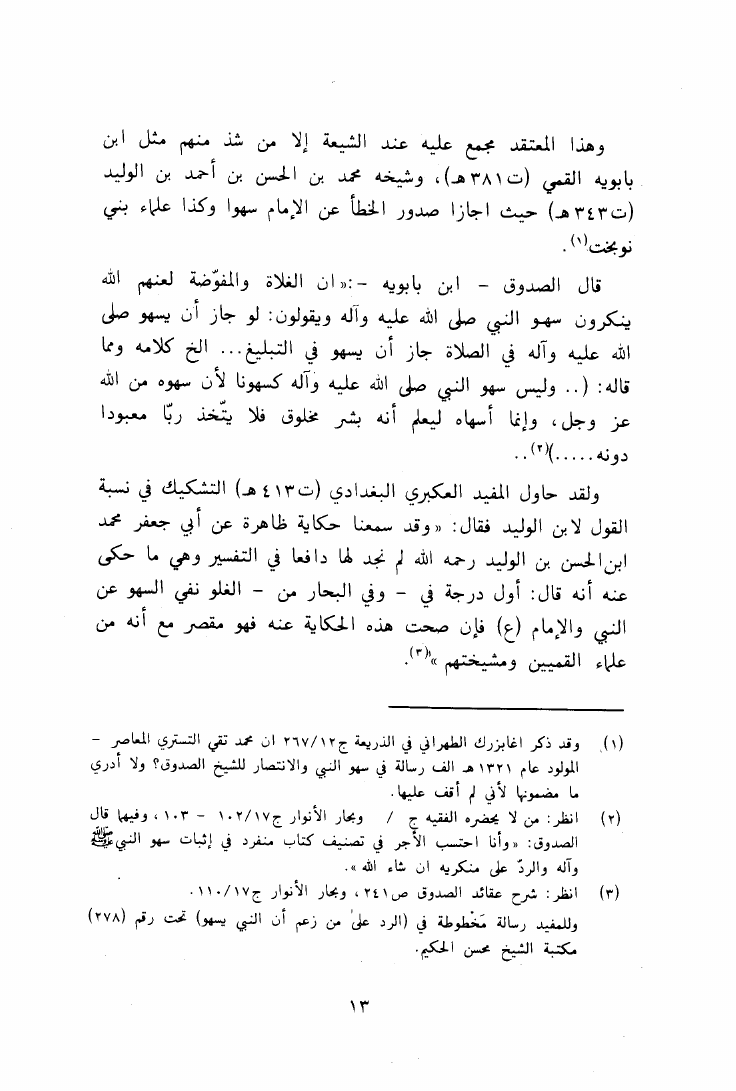 وهذا المعتقد مجمع عليه عند الشيعة إلا من شذ منهم مثل ابن
بابويه القمي (ت٣٨١هـ)، وشيخه محمد بن الحسن بن أحمد بن الوليد
(ت٣٤٣هـ) حيث اجازا صدور الخطأ عن الإمام سهوا وكذا علماء بني
نوبخت(١).
قال الصدوق - ابن بابويه -:«ان الغلاة والمفوّضة لعنهم الله
ينكرون سهو النبي صلى الله عليه وآله ويقولون: لو جاز أن يسهو صلى
الله عليه وآله في الصلاة جاز أن يسهو في التبليغ... الخ كلامه ومما
قاله: (.. وليس سهو النبي صلى الله عليه وآله كسهونا لأن سهوه من الله
عز وجل، وإنما أسهاه ليعلم أنه بشر مخلوق فلا يتّخذ ربّا معبودا
دونه.....)(٢)..
ولقد حاول المفيد العكبري البغدادي (ت٤١٣هـ) التشكيك في نسبة
القول لابن الوليد فقال: «وقد سمعنا حكاية ظاهرة عن أبي جعفر محمد
ابن الحسن بن الوليد رحمه الله لم نجد لها دافعا في التفسير وهي ما حكى
عنه أنه قال: أول درجة في - وفي البحار من - الغلو نفي السهو عن
النبي والإمام (ع) فإن صحت هذه الحكاية عنه فهو مقصر مع أنه من
علماء القميين ومشيختهم»(٣).
(١) وقد ذكر اغابزرك الطهراني في الذريعة ج٢٦٧/١٢ ان محمد تقي التستري المعاصر -
المولود عام ١٣٢١ هـ الف رسالة في سهو النبي والانتصار للشيخ الصدوق؟ ولا أدري
ما مضمونها لأني لم أقف عليها.
(٢) انظر: من لا يحضره الفقيه ج / وبحار الأنوار ج١٠٢/١٧ - ١٠٣، وفيها قال
الصدوق: «وأنا احتسب الأجر في تصنيف كتاب منفرد في إثبات سهو النبي ﷺ
وآله والردّ على منكريه ان شاء الله».
(٣) انظر: شرح عقائد الصدوق ص٢٤١، وبحار الأنوار ج١١٠/١٧.
وللمفيد رسالة مَخْطوطة في (الرد على من زعم أن النبي يسهو) تحت رقم (٢٧٨)
مكتبة الشيخ محسن الحكيم.
١٣